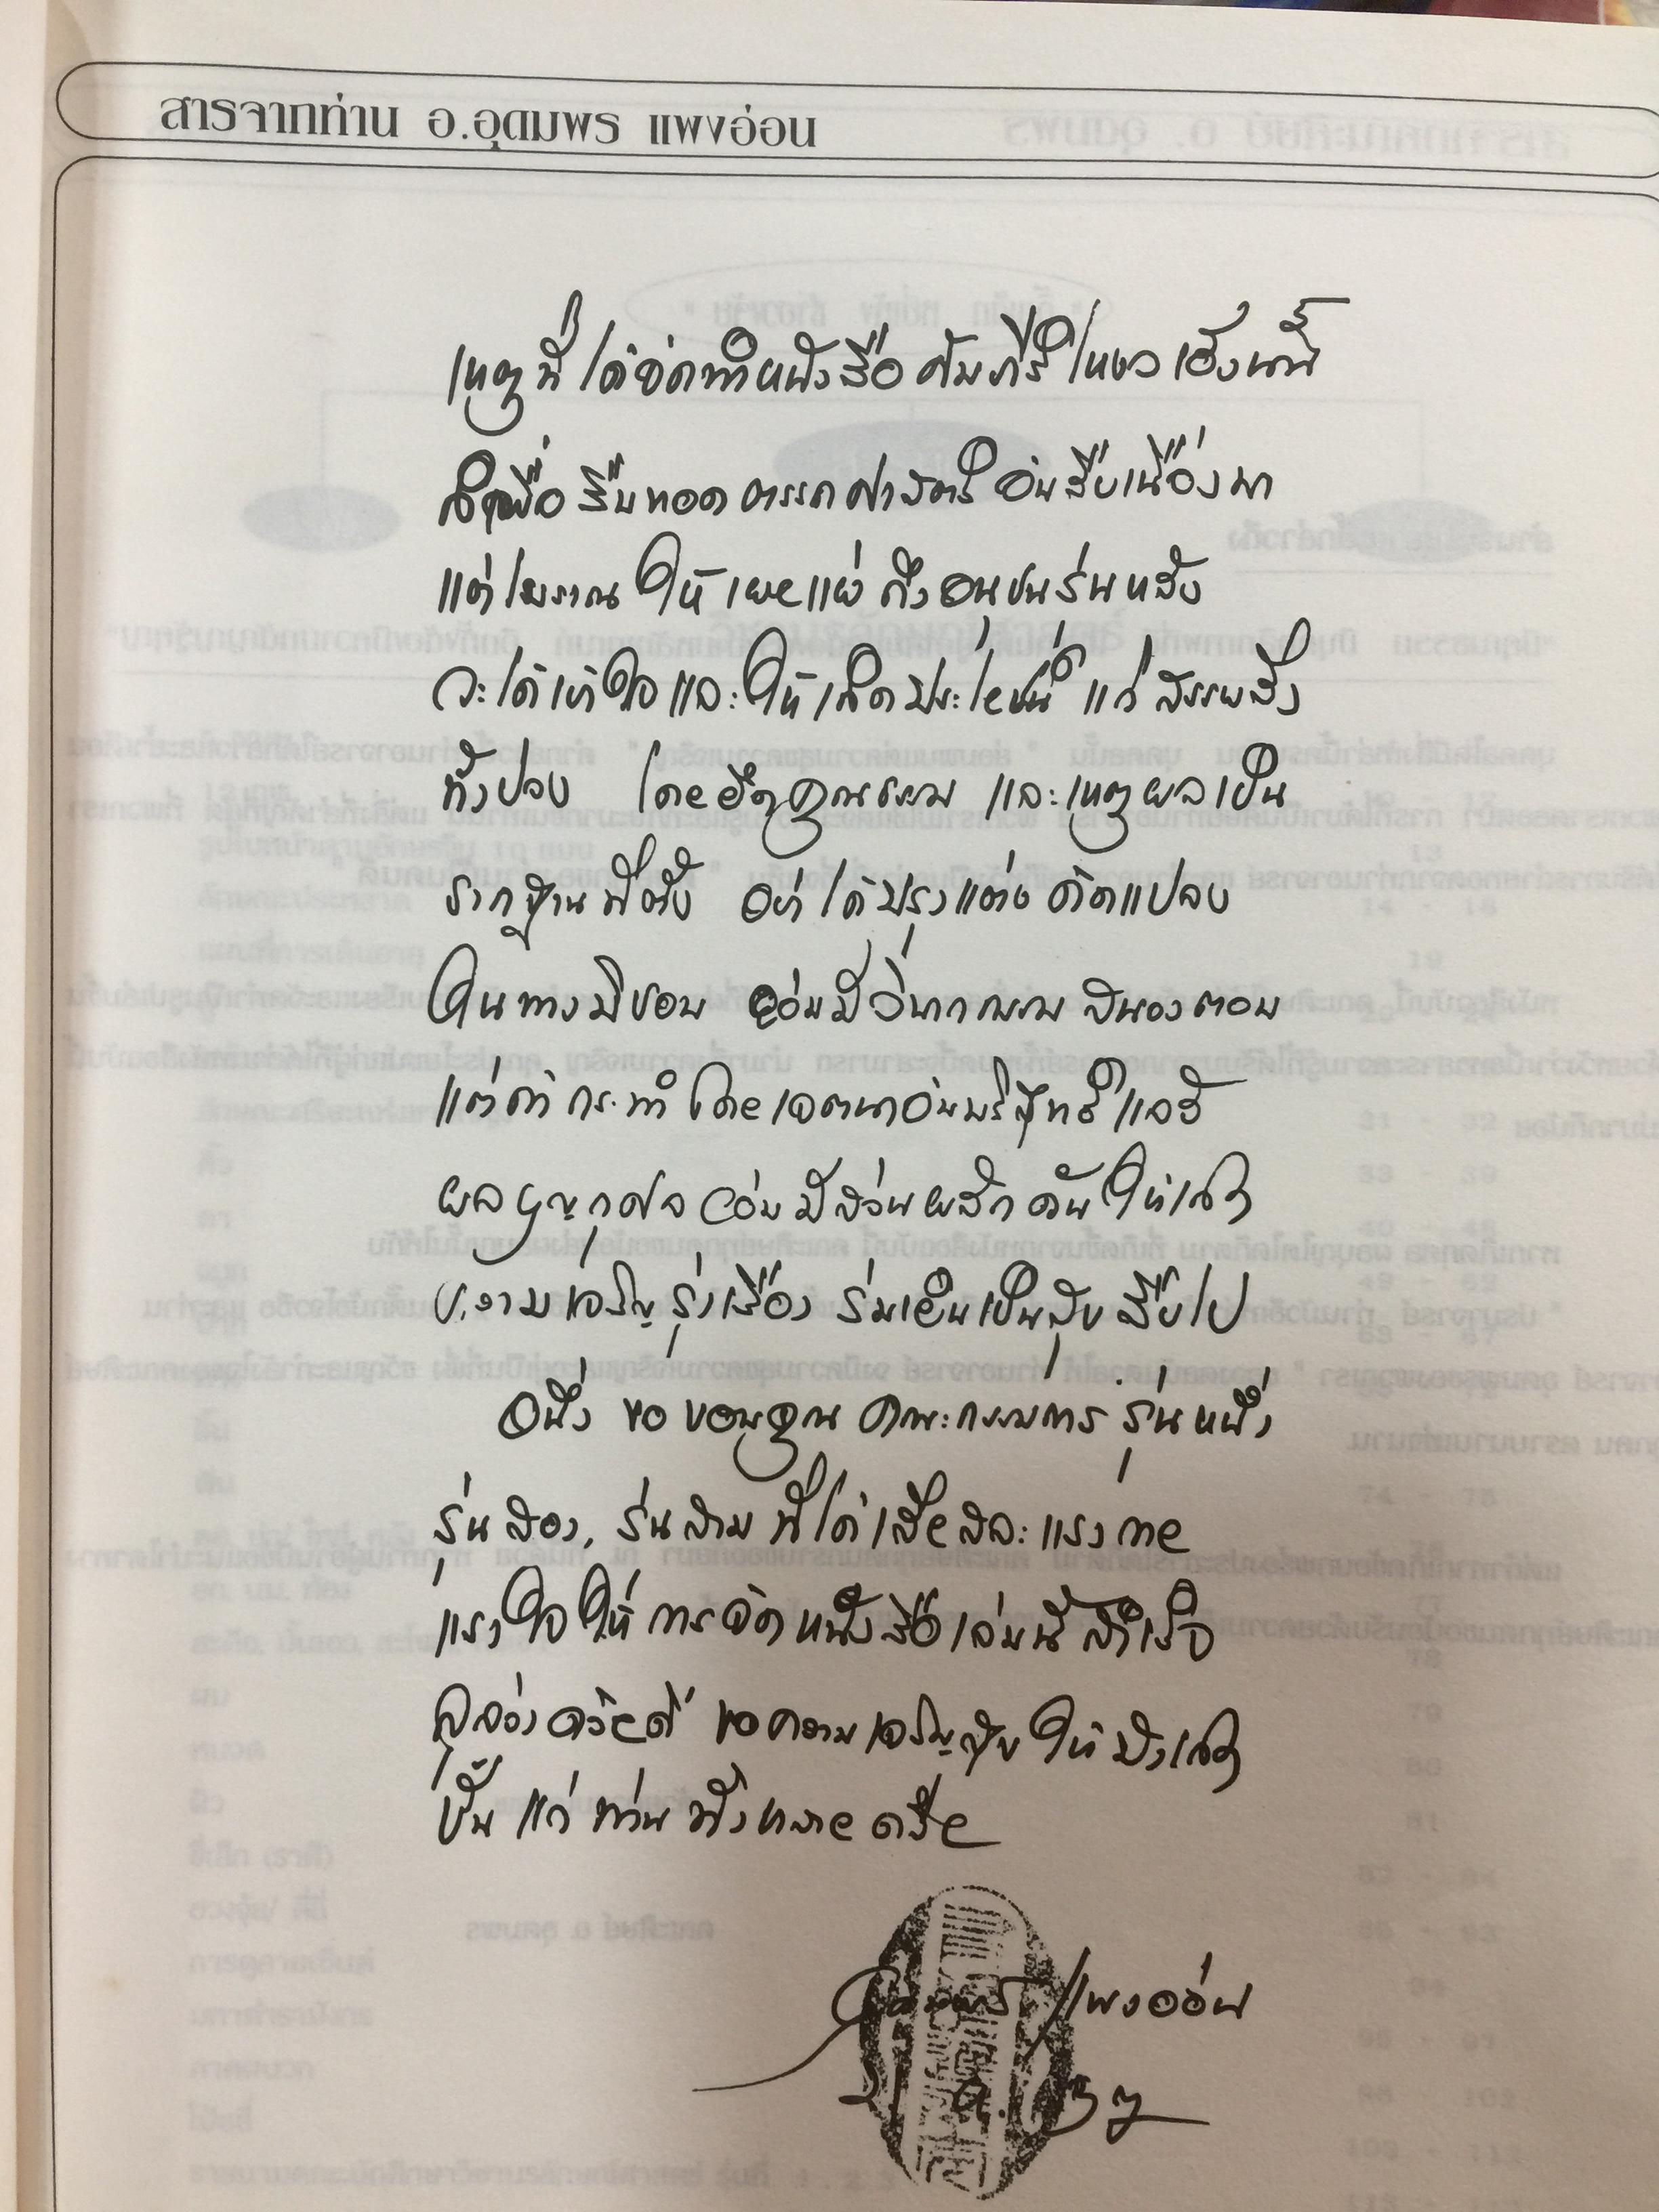 สารจากท่าน อ.อุดมพร แพงอ่อน
เหตุที่ได้จัดทำหนังสือคัมภีร์โหงวเฮ้งนี้
ก็เพื่อสืบทอดตรรกศาสตร์อันสืบเนื่องมา
แต่โบราณ ให้เผยแผ่ถึงอนุชนรุ่นหลัง
จะได้เข้าใจและให้เกิดประโยชน์แก่สรรพสิ่ง
ทั้งปวง โดยยึดคุณธรรม และเหตุผลเป็น
รากฐานที่ตั้ง อย่าได้ปรุงแต่งดัดแปลง
ในทางมิชอบ ย่อมมีวิบากกรรมสนองตอบ
แต่ถ้ากระทำโดยเจตนาอันบริสุทธิ์แล้ว
ผลบุญกุศลย่อมมีส่วนผลักดันให้เกิด
ความเจริญรุ่งเรือง ร่มเย็นเป็นสุขสืบไป
อนึ่ง ขอขอบคุณ คณะกรรมการรุ่นหนึ่ง
รุ่นสอง, รุ่นสาม ที่ได้เสียสละแรงกาย
แรงใจให้การจัดหนังสือเล่มนี้สำเร็จ
ลุล่วงด้วยดี ขอความเจริญสุขให้บังเกิด
ขึ้นแก่ท่านทั้งหลายด้วย
อุดมพร แพงอ่อน